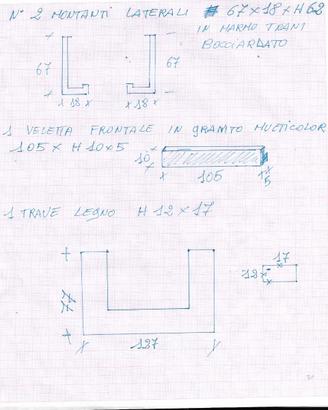 N° 2 MONTANTI LATERALI 67×18×H62
IN MARMO TRANI
BOCCIARDATO
67
18
18
67
1 VELETTA FRONTALE IN GRANITO MULTICOLOR
105 × H10×5
10
105
5
1 TRAVE LEGNO H 12×17
77
127
17
12